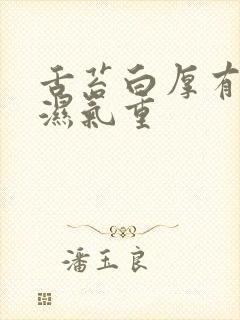 舌苔白厚有
濕氣重
潘玉良